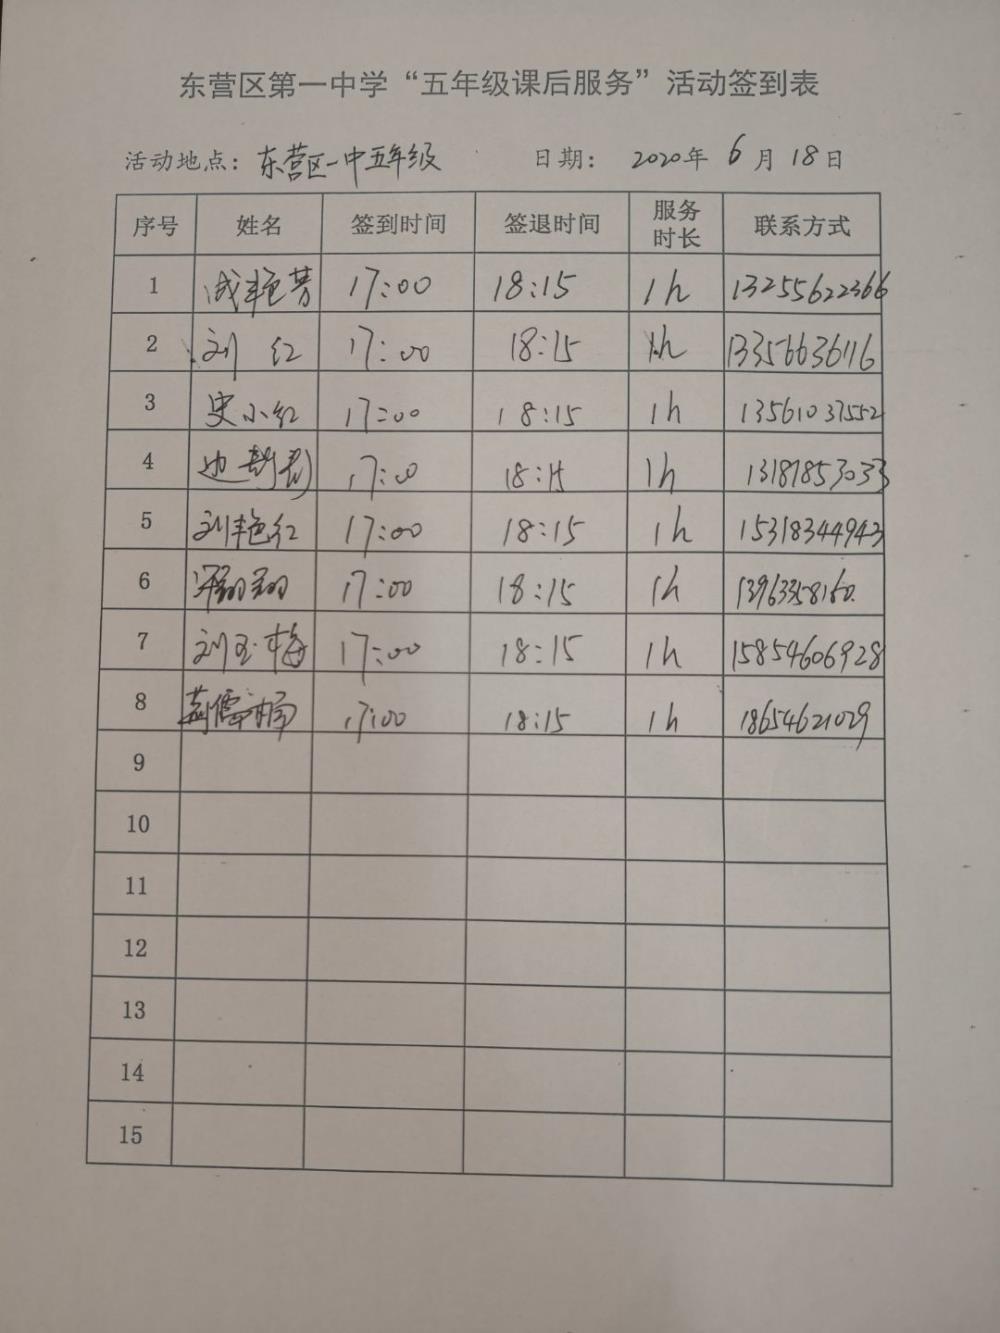 东营区第一中学“五年级课后服务”活动签到表
活动地点：东营区一中五年级 日期： 2020年 6月 18日
序号 姓名 签到时间 签退时间 服务时长 联系方式
1 成艳芳 17:00 18:15 1h 13255622366
2 刘红 17:00 18:15 1h 13356636116
3 史小红 17:00 18:15 1h 13561037552
4 17:00 18:15 1h 13181853033
5 刘艳红 17:00 18:15 1h 15318344943
6 17:00 18:15 1h 13963358160
7 刘玉梅 17:00 18:15 1h 15854606928
8 17:00 18:15 1h 18654621029
9
10
11
12
13
14
15